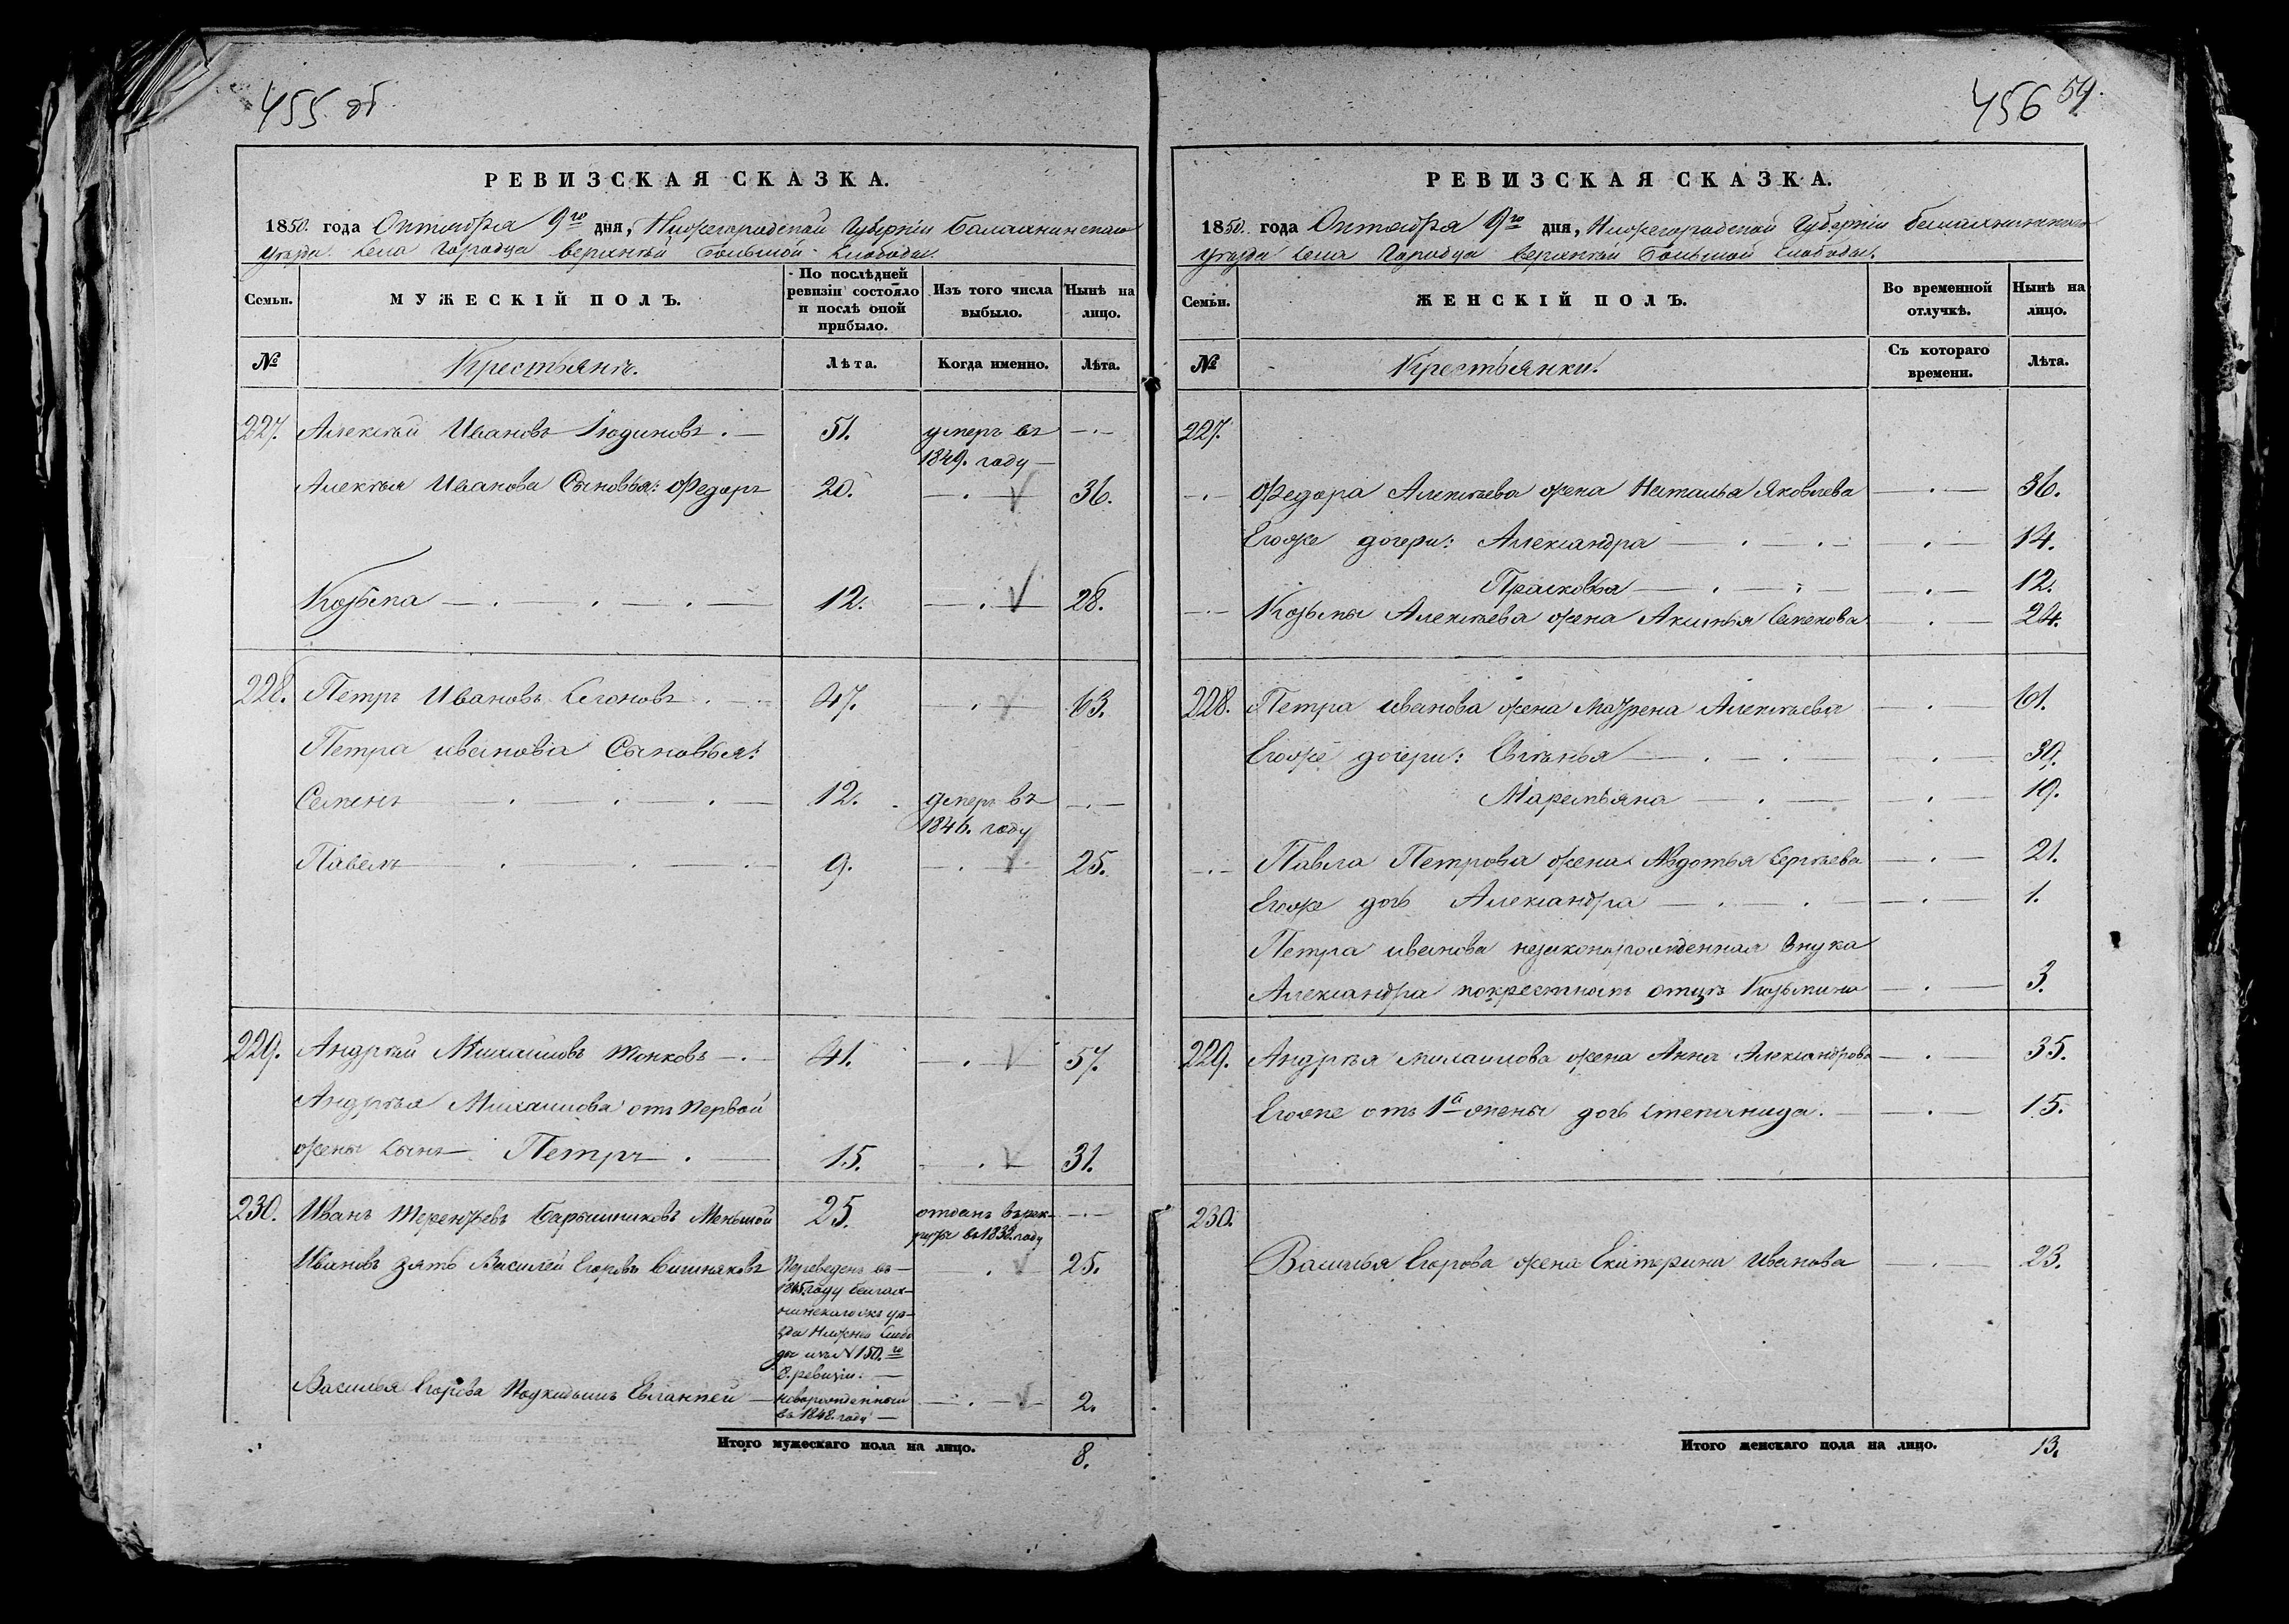 455 об
РЕВИЗСКАЯ СКАЗКА.
1850. года Октября 9го дня, Нижегородской Губернiи Балахнинскаго
уѣзда. Села Городца верхнѣй большой Слободы.
Семьи.
МУЖЕСКІЙ ПОЛЪ.
По послѣдней ревизіи состояло и послѣ оной прибыло.
Изъ того числа выбыло.
Нынѣ на лицо.
№
Крестьянъ.
Лѣта.
Когда именно.
Лѣта.
227. Алексѣй Ивановъ 51. умеръ въ — . —
1849. году —
Алексѣя Иванова Сыновья: Федоръ 20. — . — √ 36.
Козьма — . — . — . — 12. — . √ — 28.
228. Петръ Ивановъ 47. — . √ 63.
Петра иванова Сыновья:
Семенъ — . — . — . — 12. умеръ въ — . —
1846. году
Павелъ — . — . — . 9. — . √ — 25.
229. Андрѣй Михайловъ Тонковъ — . 41. — . √ 57.
Андрѣя Михайлова отъ первой
жены Сынъ Петръ . — 15. — . √ 31.
230. Иванъ Терентьевъ Барышниковъ Меньшой 25. отданъ въ рек- — . —
руты въ 1838. году
Ивановъ зять Василей Егоровъ Вишняковъ Переведенъ въ — — . √ 25.
1845. году Балах-
нинскаго жъ уѣ-
зда Нижней Слобо
ды изъ № 150. го
8. ревизiи. —
Василья Егорова Подкидышъ Евлампей — новорожденный — . — √ 2.
въ 1848. году —
Итого мужескаго пола на лицо. 8.
456 54.
РЕВИЗСКАЯ СКАЗКА.
1850. года Октября 9го дня, Нижегородской Губернiи Балахнинскаго
уѣзда Села Городца верхнѣй большой Слободы.
Семьи.
ЖЕНСКІЙ ПОЛЪ.
Во временной отлучкѣ.
Нынѣ на лицо.
№
Крестьянки.
Съ котораго времени.
Лѣта.
227.
— . — Федора Алексѣева жена Наталья Яковлева — . — 36.
Егоже дочери: Александра — . — . — . — 14.
Прасковья — . — . — . — 12.
— . — Козьмы Алексѣева жена Аксинья Семенова — . — 24.
228. Петра иванова жена Маѳрена Алексѣева — . — 61.
Егоже дочери: Евгенья — . — . — . — 39.
Маремьяна — . — — . — 19.
— . — Павла Петрова жена Авдотья Сергѣева — . — 21.
Егоже дочь Александра — . — . — — . — 1.
Петра иванова незаконорожденная внука
Александра покрестномъ отцѣ Козьмина — . — 3.
229. Андрѣя михайлова жена Анна Александрова — . — 35.
Егоже отъ 1й жены дочь Степанида. — — . — 15.
230.
Василья Егорова жена Екатерина Иванова — . — 23.
Итого женскаго пола на лицо. 13.